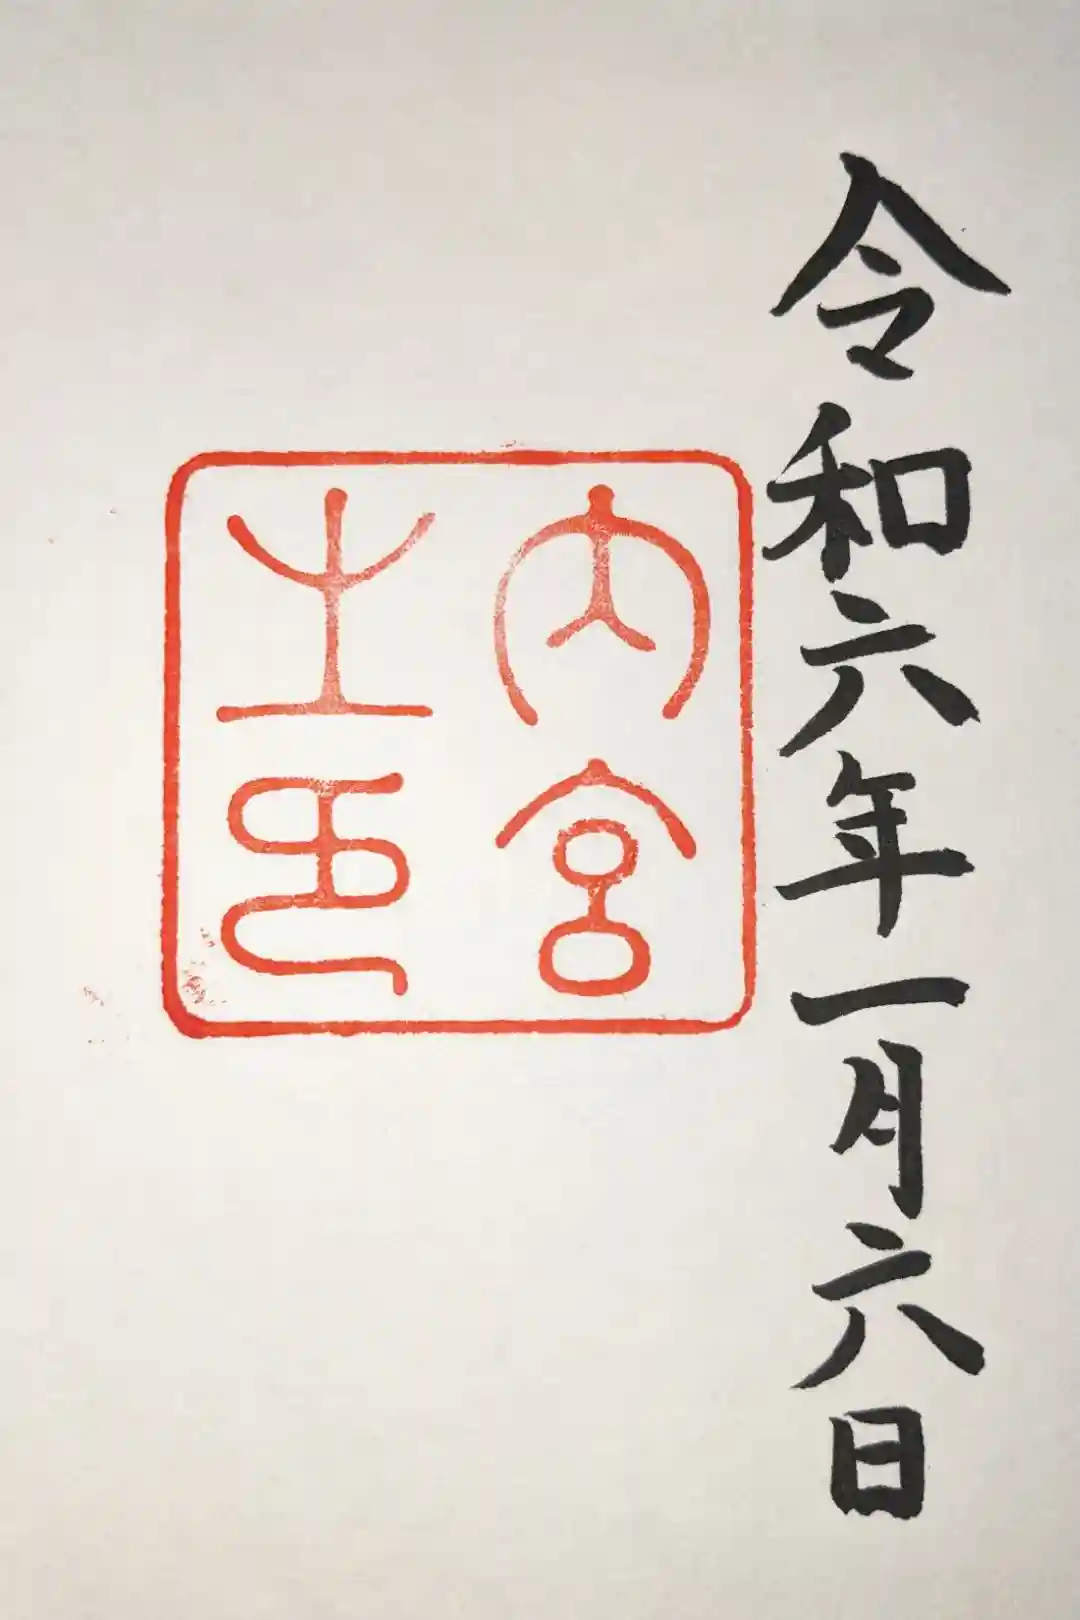 令和六年一月六日
内宮
之印